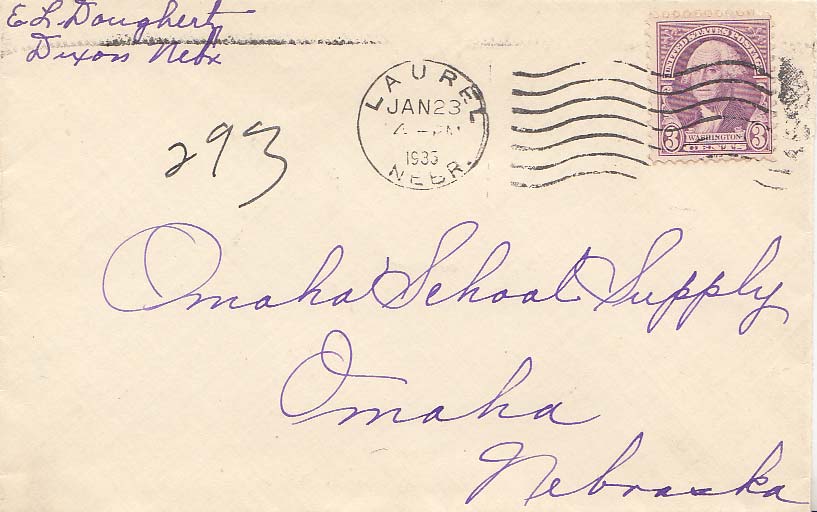 E L Dougherty
Dixon Nebr
LAUREL
JAN 23
1935
NEBR.
UNITED STATES POSTAGE
3 WASHINGTON 3
CENTS
293
Omaha School Supply
Omaha
Nebraska